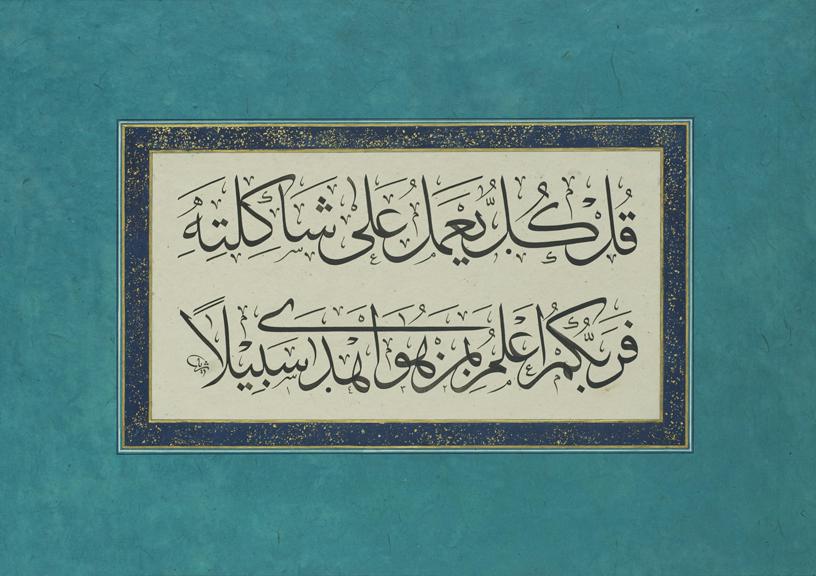 قُلْ كُلٌّ يَعْمَلُ عَلَى شَاكِلَتِهِ
فَرَبُّكُمْ أَعْلَمُ بِمَنْ هُوَ أَهْدَى سَبِيلًا